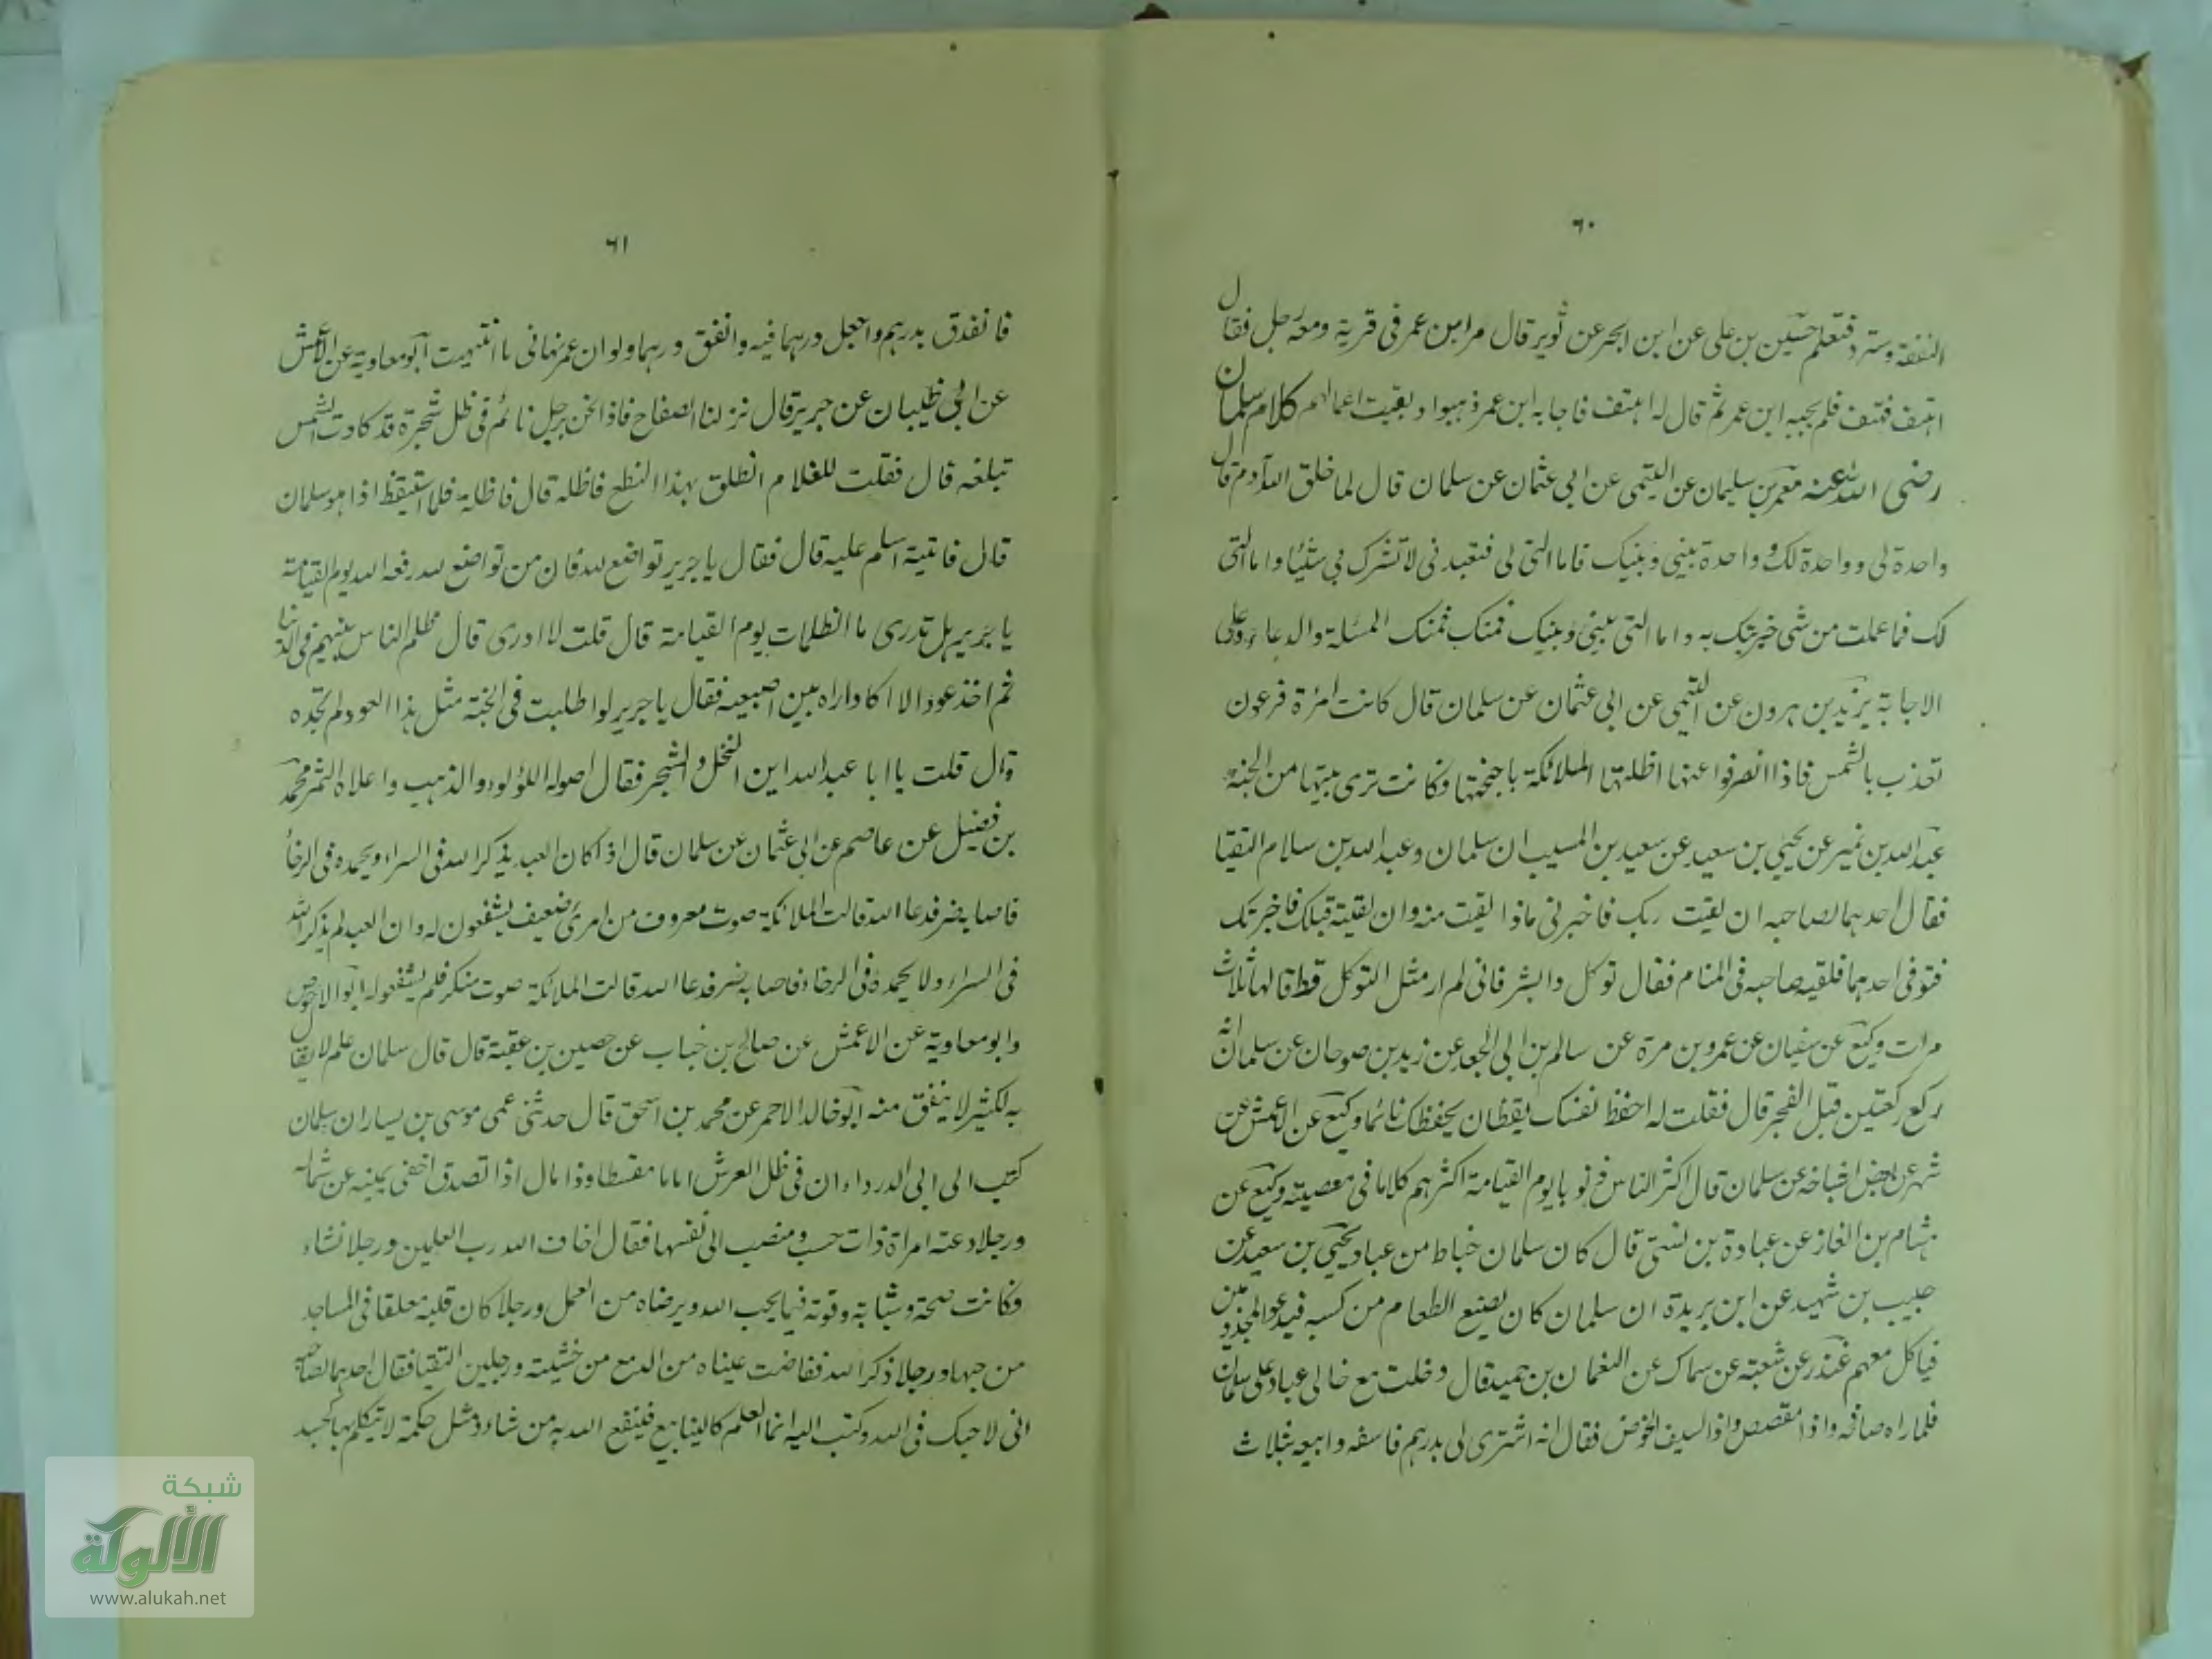 ٦٠
النفقة وسترد فتعلم حسين بن على عن ابن ابجر عن ثوير قال مر ابن عمر فى قرية ومعه رجل فقال
اهتف فهتف فلم يجبه ابن عمر ثم قال له اهتف فاجابه ابن عمر ذهبوا وبقيت اعمالهم كلام سلمان
رضى الله عنه معمر بن سليمان عن التيمى عن ابي عثمان عن سلمان قال لما خلق الله آدم قال
واحدة لى وواحدة لك وواحدة بينى وبينك فاما التى لى فتعبدنى لا تشرك بى شيئا واما التى
لك فما عملت من شى خبرتك به واما التى بينى وبينك فمنك فمنك المسئلة والدعاء وعلى
الاجابة يزيد بن هرون عن التيمى عن ابى عثمان عن سلمان قال كانت امرئة فرعون
تعذب بالشمس فاذا انصرفوا عنها اظلتها الملائكة باجنحتها وكانت ترى بيتها من الجنة
عبد الله بن نمير عن يحيى بن سعيد عن سعيد بن المسيب ان سلمان وعبد الله بن سلام التقيا
فقال احدهما لصاحبه ان لقيت ربك فاخبرنى ماذا لقيت منه وان لقيته قبلك فاخبرتك
فتوفى احدهما فلقيه صاحبه فى المنام فقال توكل وابشر فانى لم ار مثل التوكل قط قالها ثلاث
مرات وكيع عن سفيان عن عمرو بن مرة عن سالم بن ابى الجعد عن زيد بن صوحان عن سلمان انه
ركع ركعتين قبل الفجر قال فقلت له احفظ نفسك يقظان يحفظك نائما وكيع عن الاعمش عن
شمر عن بعض اشياخه عن سلمان قال اكثر الناس ذنوبا يوم القيامة اكثرهم كلاما فى معصيته وكيع عن
هشام بن الغاز عن عبادة بن نسى قال كان سلمان خباط من عبا يحيى بن سعيد عن
حبيب بن شهيد عن ابن بريدة ان سلمان كان يصنع الطعام من كسبه فيدعو المجذومين
فياكل معهم غندر عن شعبة عن سماك عن النعمان بن حميد قال دخلت مع خالى عباد على سلمان
فلما راه صافحه واذا مقصص واذا السيف الخوض فقال انه اشترى لى بدرهم فاسفه وابيعه بثلاث
٦١
فانفدق بدرهم واجعل درهما فيه وانفق درهما ولو ان عمر نهانى ما انتهيت ابو معاوية عن الاعمش
عن ابى ظبيان عن جرير قال نزلنا الصفاح فاذا نحن برجل نائم فى ظل شجرة قد كادت الشمس
تبلغه قال فقلت للغلام انطلق بهذا النطع فاظله قال فاظله فلما استيقظ اذا هو سلمان
قال فاتيته اسلم عليه قال فقال يا جرير تواضع لله فان من تواضع لله رفعه الله يوم القيامة
يا جرير هل تدرى ما الظلمات يوم القيامة قال قلت لا ادرى قال ظلم الناس بينهم فى الدنيا
ثم اخذ عودا لا اكاد اراه بين اصبعيه فقال يا جرير لو طلبت فى الجنة مثل هذا العود لم تجده
قال قلت يا ابا عبد الله اين النخل والشجر فقال اصوله اللؤلود والذهب واعلاه الثمر محمد
بن فضيل عن عاصم عن ابى عثمان عن سلمان قال اذا كان العبد يذكر الله فى السراء ويحمده فى الرخاء
فاصابه ضر فدعا الله قالت الملائكة صوت معروف من امرئ ضعيف يشفعون له وان العبد لم يذكر الله
فى السراء ولا يحمده فى الرخاء فاصابه ضر فدعا الله قالت الملائكة صوت منكر فلم يشفعوا له ابو الاحوص
وابو معاوية عن الاعمش عن صالح بن خباب عن حصين بن عقبة قال قال سلمان علم لا يقال
به لكثير لا ينفق منه ابو خالد الاحمر عن محمد بن اسحق قال حدثنى عمى موسى بن يسار ان سلمان
كتب الى ابى الدرداء ان فى ظل العرش اماما مقسطا وذا مال اذا تصدق اخفى يمينه عن شماله
ورجلا دعته امراة ذات حسب ومنصب الى نفسها فقال اخاف الله رب العلمين ورجلا نشاء
فكانت صحته وشبابه وقوته فيما يحب الله ويرضاه من العمل ورجلا كان قلبه معلقا فى المساجد
من حبها ورجلا ذكر الله ففاضت عيناه من الدمع من خشيته ورجلين التقيا فقال احدهما لصاحبه
انى لاحبك فى الله وكتب اليه انما العلم كالينابيع فينفع الله به من شاء ومثل حكمة لا يتكلم بها كجسد
شبكة
الألوكة
www.alukah.net